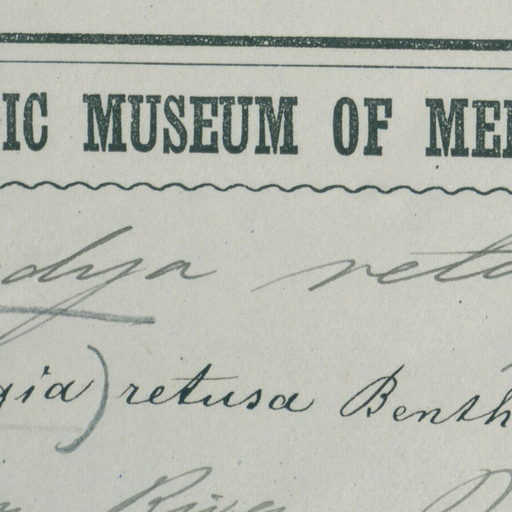 IC MUSEUM OF MEL
dya reta
gia) retusa Benth
River